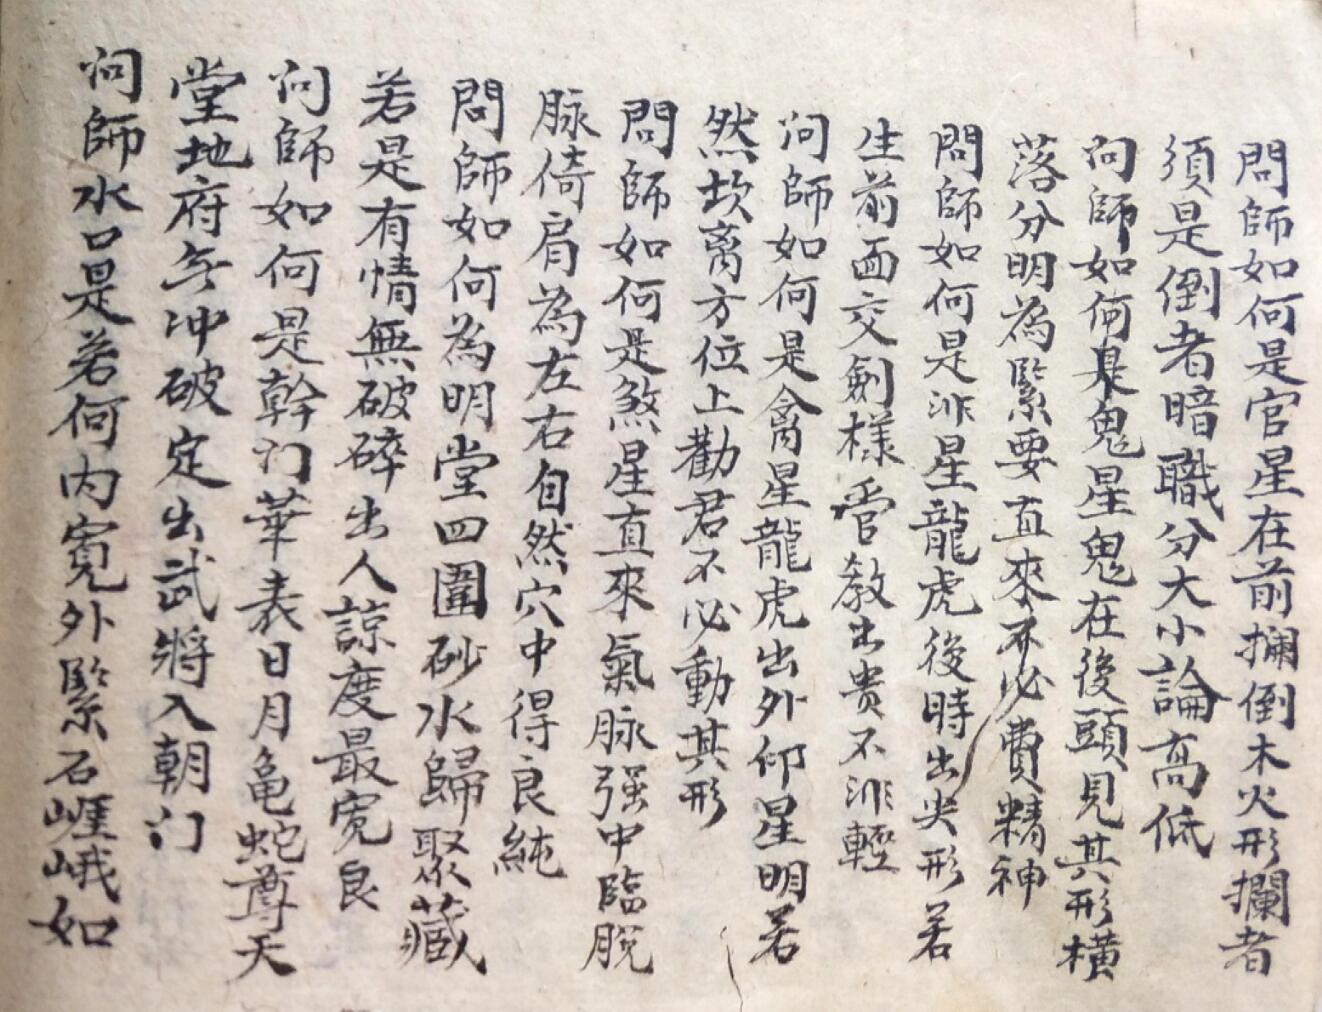 問師如何是官星在前攔倒木火形攔者
須是倒者暗職分大小論高低
问師如何是鬼星鬼在後頭見其形橫
落分明為緊要直來不必費精神
問師如何是非星龍虎後時出尖形若
生前面交劍樣管教出贵不非輕
问師如何是禽星龍虎出外仰星明若
然坎离方位上勸君不必動其形
問師如何是煞星直來氣脉强中臨脫
脉倚肩為左右自然穴中得良純
問師如何為明堂四圍砂水歸聚藏
若是有情無破碎出人諒度最宽良
问師如何是幹门華表日月亀蛇尊天
堂地府无冲破定出武將入朝门
问師水口是若何内寬外緊石崕峨如